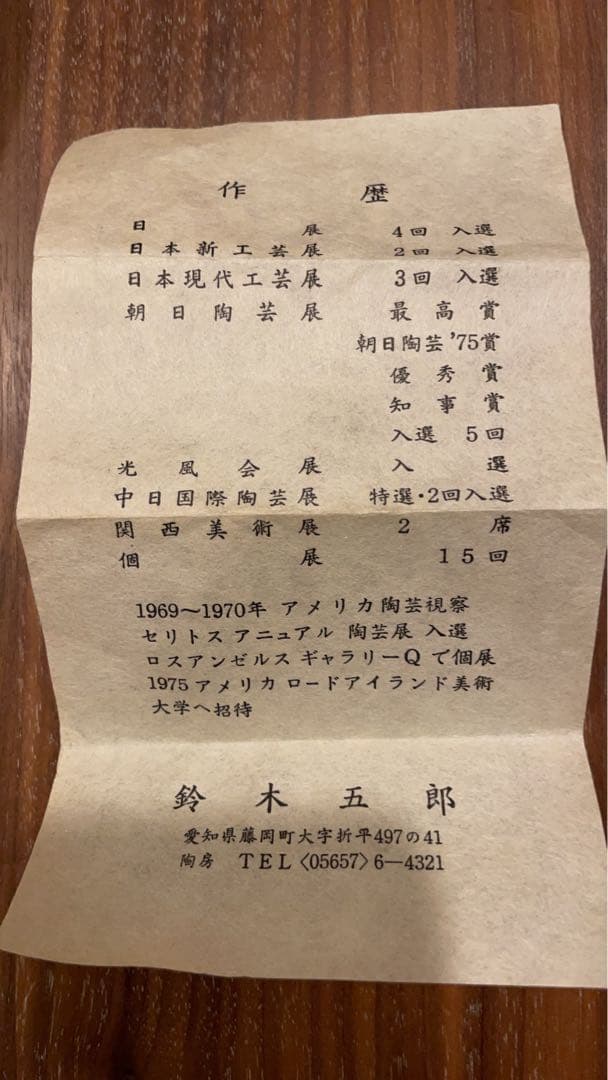 作歴
日展 4回 入選
日本新工芸展 2回 入選
日本現代工芸展 3回 入選
朝日陶芸展 最高賞
朝日陶芸'75賞
優秀賞
知事賞
入選 5回
光風会展 入選
中日国際陶芸展 特選・2回入選
関西美術展 2席
個展 15回
1969〜1970年 アメリカ陶芸視察
セリトス アニュアル 陶芸展 入選
ロスアンゼルス ギャラリーQ で個展
1975 アメリカ ロードアイランド美術
大学へ招待
鈴木五郎
愛知県藤岡町大字折平497の41
陶房 TEL〈05657〉6—4321